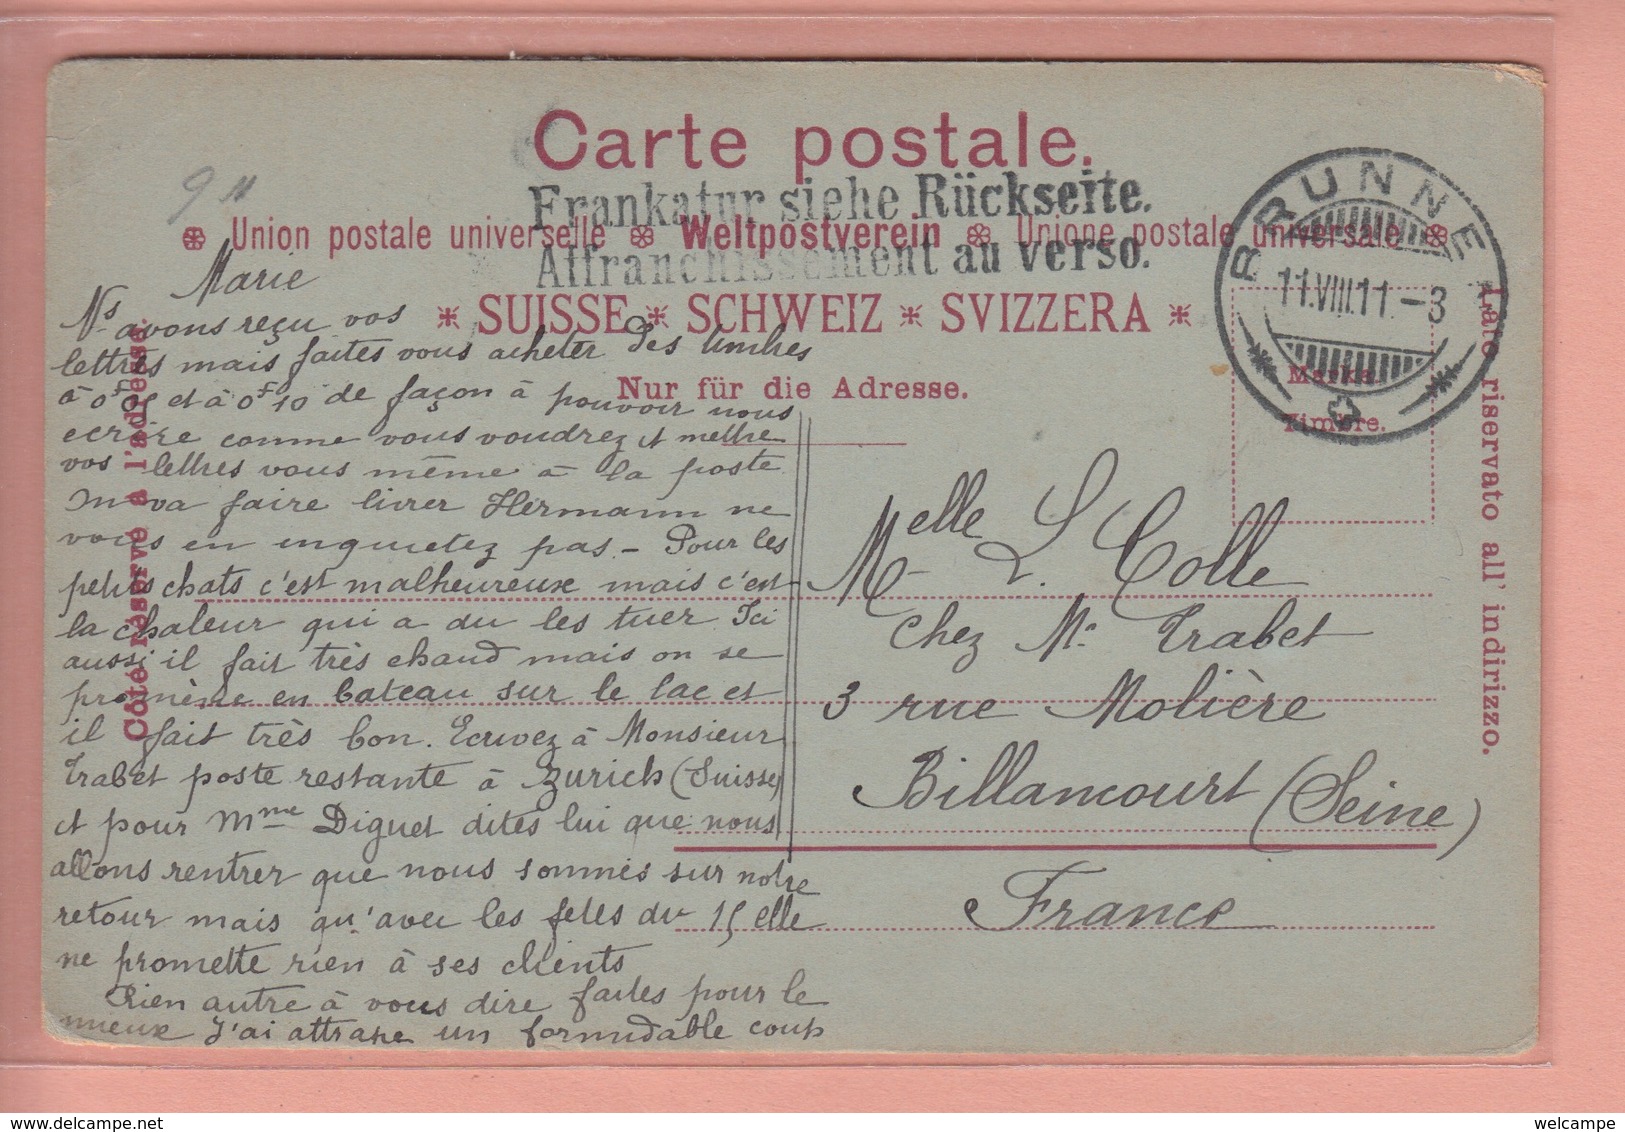 Carte postale.
Frankatur siehe Rückseite.
Union postale universelle Weltpostverein Unione postale universale
Affranchissement au verso.
SUISSE * SCHWEIZ * SVIZZERA *
Nur für die Adresse.
Côté réservé à l'adresse.
Lato riservato all' indirizzo.
Marke.
Timbre.
BRUNNEN
11.VIII.11.-3
9
Marie
Ns avons reçu vos
lettres mais faites vous acheter des timbres
à 0f05 et à 0f10 de façon à pouvoir nous
ecrire comme vous voudrez et mettre
vos lettres vous même à la poste
On va faire livrer Hermann ne
vous en inquietez pas. - Pour les
petits chats c'est malheureux mais c'est
la chaleur qui a du les tuer. Ici
aussi il fait très chaud mais on se
promène en bateau sur le lac et
il fait très bon. Ecrivez à Monsieur
Trabet poste restante à Zurich (Suisse)
et pour Mme Diguet dites lui que nous
allons rentrer que nous sommes sur notre
retour mais qu'avec les fetes du 15 elle
ne promette rien à ses clients
Rien autre à vous dire faites pour le
mieux J'ai attrape un formidable coup
Melle L. Colle
chez Mr Trabet
3 rue Molière
Billancourt (Seine)
France
welcampe
welcampe